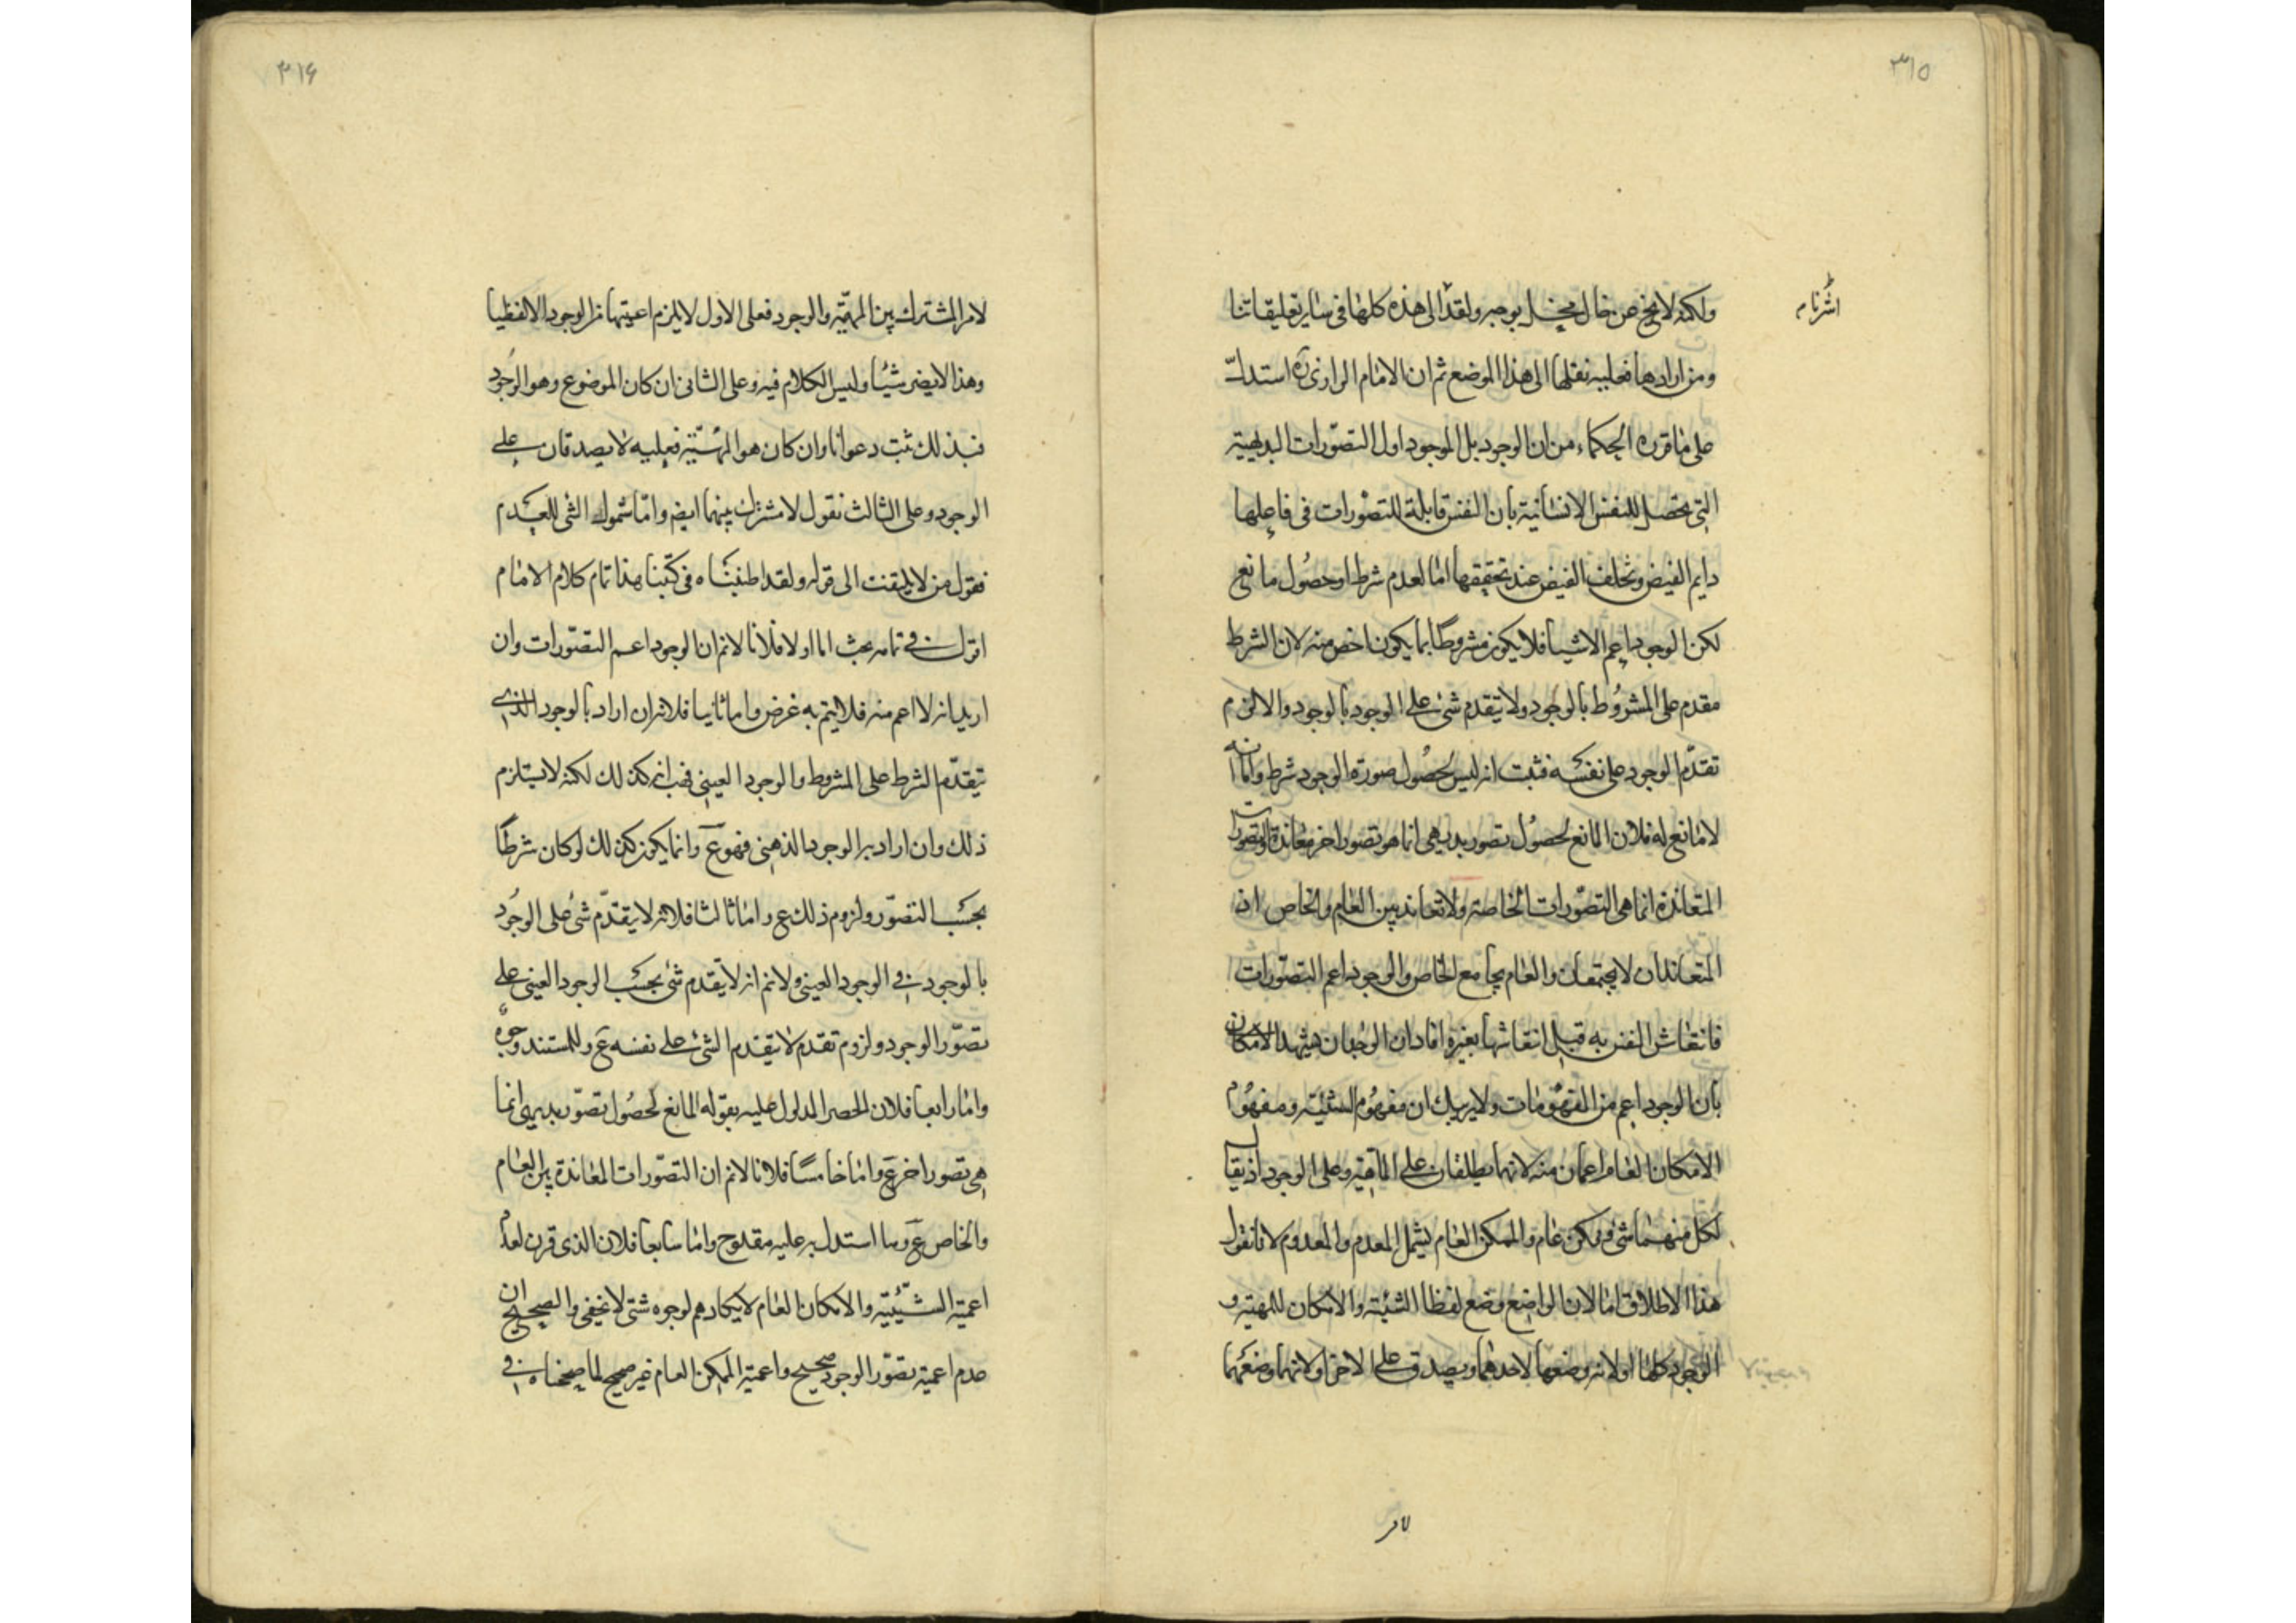 ٣١٥
ولكنه لا يخ عن خال مخيل بوجه ولقد الى هذه كلها فى ساير تعليقاتنا
اشرنا م
ومن ارادها فعليه نقلها الى هذا الموضع ثم ان الامام الرازى ره استدل
على ما قرره الحكماء من ان الوجود بل الموجود اول التصورات البديهية
التى تحصل للنفس الانسانية بأن النفس قابلة للتصورات فى فاعلها
دايم الفيض وتخلف الفيض عند تحققها اما لعدم شرط او حصول مانع
لكن الوجود اعم الاشياء فلا يكون مشروطا بما يكون اخص منه لان الشرط
مقدم على المشروط بالوجود ولا يتقدم شئ على الوجود بالوجود والا لزم
تقدم الوجود على نفسه فثبت انه ليس لحصول صورة الوجود شرط واما انه
لا مانع له فلان المانع لحصول تصور بديهى انما هو تصور اخر معانده والتصورات
المتعاندة انما هى التصورات الخاصة ولا تعاند بين العام والخاص اذ
المتعاندان لا يجتمعان والعام يجامع الخاص والوجود اعم التصورات
فانتقاش النفس به قبل انتقاشها بغيره افاد ان الوجدان يشهد الامكان
بأن الوجود اعم من المفهومات ولا يريبك ان مفهوم الشيئية ومفهوم
الامكان العام اعمان منه لانهما يطلقان على الماهية وعلى الوجود اذ يقال
لكل منهما شئ وممكن عام والممكن العام يشمل المعدم والمعدوم لانا نقول
هذا الاطلاق اما لان الواضع وضع لفظا الشيئية والامكان للمهية و
الوجود كلها اولانه وضعها لاحدهما ويصدق على الاخر اولانهما وضعهما
لامر
٣١۶
لامر المشترك بين المهية والوجود فعلى الاول لا يلزم اعميتها من الوجود الا لفظيا
وهذا لا يضر شيئا وليس الكلام فيه وعلى الثانى ان كان الموضوع وهو الوجود
فبذلك ثبت دعوانا وان كان هو المهية فعليه لا يصدقان على
الوجود وعلى الثالث نقول لا مشترك بينهما ايضا واما شمول الشئ للعدم
فقول من لا يلتفت الى قوله ولقد اطنبناه فى كتبنا هذا تمام كلام الامام
اقول فى تمامه بحث اما اولا فلانا لانم ان الوجود اعم التصورات وان
اريد انه لا اعم منه فلا يتم به غرض واما ثانيا فلانه ان اراد بالوجود الذى
يتقدم الشرط على المشروط والوجود العينى فهب انه كذلك لكنه لا يستلزم
ذلك وان اراد به الوجود الذهنى فهو ع وانما يكون كذلك لو كان شرطا
بحسب التصور ولزوم ذلك ع واما ثالثا فلانه لا يتقدم شئ على الوجود
بالوجود فى الوجود العينى ولانم انه لا يتقدم شئ بحسب الوجود العينى على
تصور الوجود ولزوم تقدم لا يتقدم الشئ على نفسه ع وللمستند وجوه
واما رابعا فلان الحصر المدلول عليه بقوله المانع لحصول تصور بديهى انما
هى تصور اخر ع واما خامسا فلانا لانم ان التصورات المعاندة بين العام
والخاص ع وما استدل به عليه مقدوح واما سابعا فلان الذى قرن لعدم
اعمية الشيئية والامكان العام لا يكاد هم لوجوه شتى لا تخفى والصحيح ان
عدم اعمية تصور الوجود صحيح واعمية الممكن العام غير صحيح لما صححناه فى